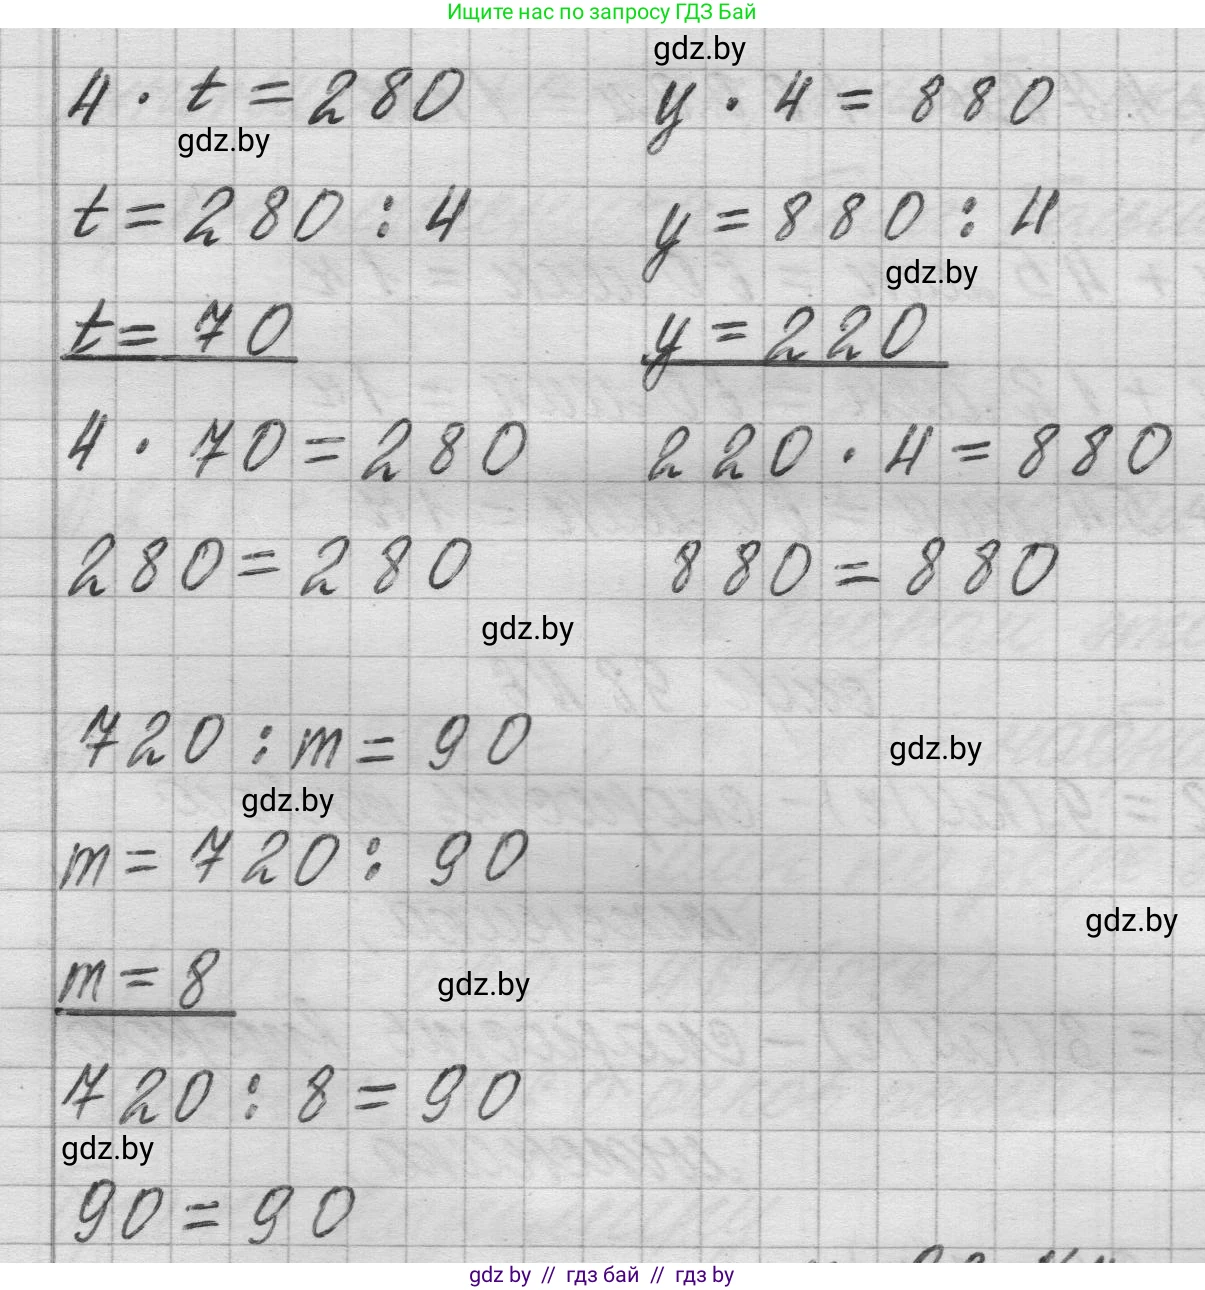 Ищите нас по запросу ГДЗ Бай
gdz.by
4 · t = 280
gdz.by
t = 280 : 4
t = 70
4 · 70 = 280
280 = 280
y · 4 = 880
y = 880 : 4
gdz.by
y = 220
220 · 4 = 880
880 = 880
gdz.by
720 : m = 90
gdz.by
gdz.by
m = 720 : 90
gdz.by
m = 8
gdz.by
720 : 8 = 90
gdz.by
90 = 90
gdz by // гдз бай // гдз by